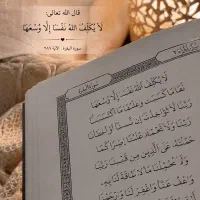 قال الله تعالى:
لَا يُكَلِّفُ اللَّهُ نَفْسًا إِلَّا وُسْعَهَا
سورة البقرة . الآية ٢٨٦
لَا يُكَلِّفُ اللَّهُ نَفْسًا إِلَّا وُسْعَهَا
لَهَا مَا كَسَبَتْ وَعَلَيْهَا مَا اكْتَسَبَتْ
رَبَّنَا لَا تُؤَاخِذْنَا إِن نَّسِينَا أَوْ أَخْطَأْنَا
رَبَّنَا وَلَا تَحْمِلْ عَلَيْنَا إِصْرًا كَمَا
حَمَلْتَهُ عَلَى الَّذِينَ مِن قَبْلِنَا رَبَّنَا
وَلَا تُحَمِّلْنَا مَا لَا طَاقَةَ لَنَا بِهِ
وَاعْفُ عَنَّا وَاغْفِرْ لَنَا وَارْحَمْنَا